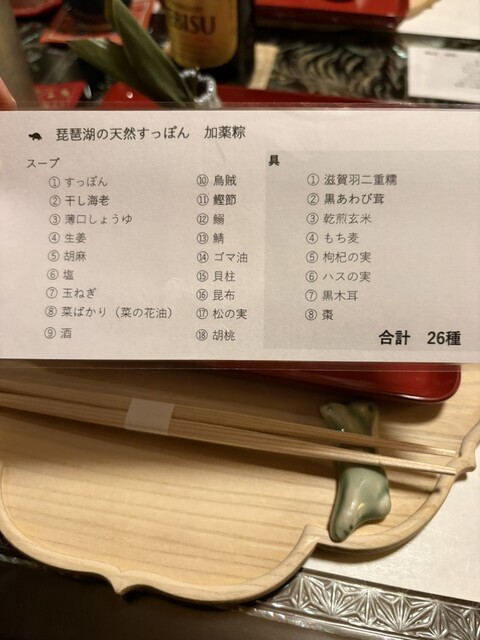 EBISU
琵琶湖の天然すっぽん 加薬粽
スープ
①すっぽん
②干し海老
③薄口しょうゆ
④生姜
⑤胡麻
⑥塩
⑦玉ねぎ
⑧菜ばかり（菜の花油）
⑨酒
⑩烏賊
⑪鰹節
⑫鰯
⑬鯖
⑭ゴマ油
⑮貝柱
⑯昆布
⑰松の実
⑱胡桃
具
①滋賀羽二重糯
②黒あわび茸
③乾煎玄米
④もち麦
⑤枸杞の実
⑥ハスの実
⑦黒木耳
⑧棗
合計 26種